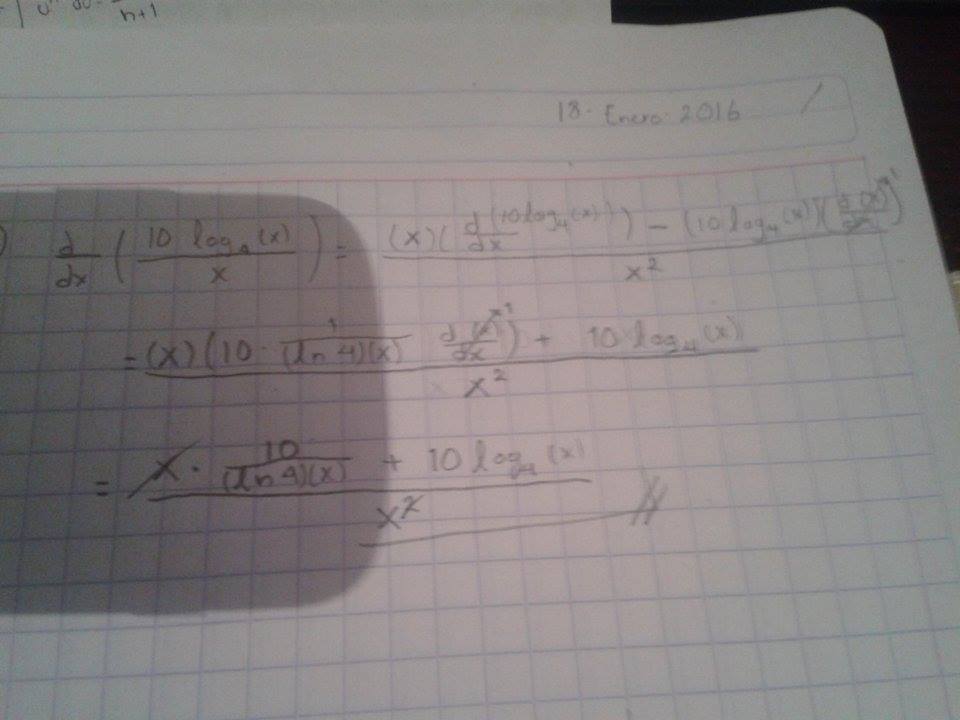 n+1
18. Enero 2016
) d/dx (10 log₄(x) / x) = (x)(d/dx (10 log₄(x))) − (10 log₄(x))(d(x)/dx)¹ / x²
= (x)(10 · 1/(ln 4)(x) d(x)/dx ¹) + 10 log₄(x) / x²
= x · 10/(ln 4)(x) + 10 log₄(x) / x²